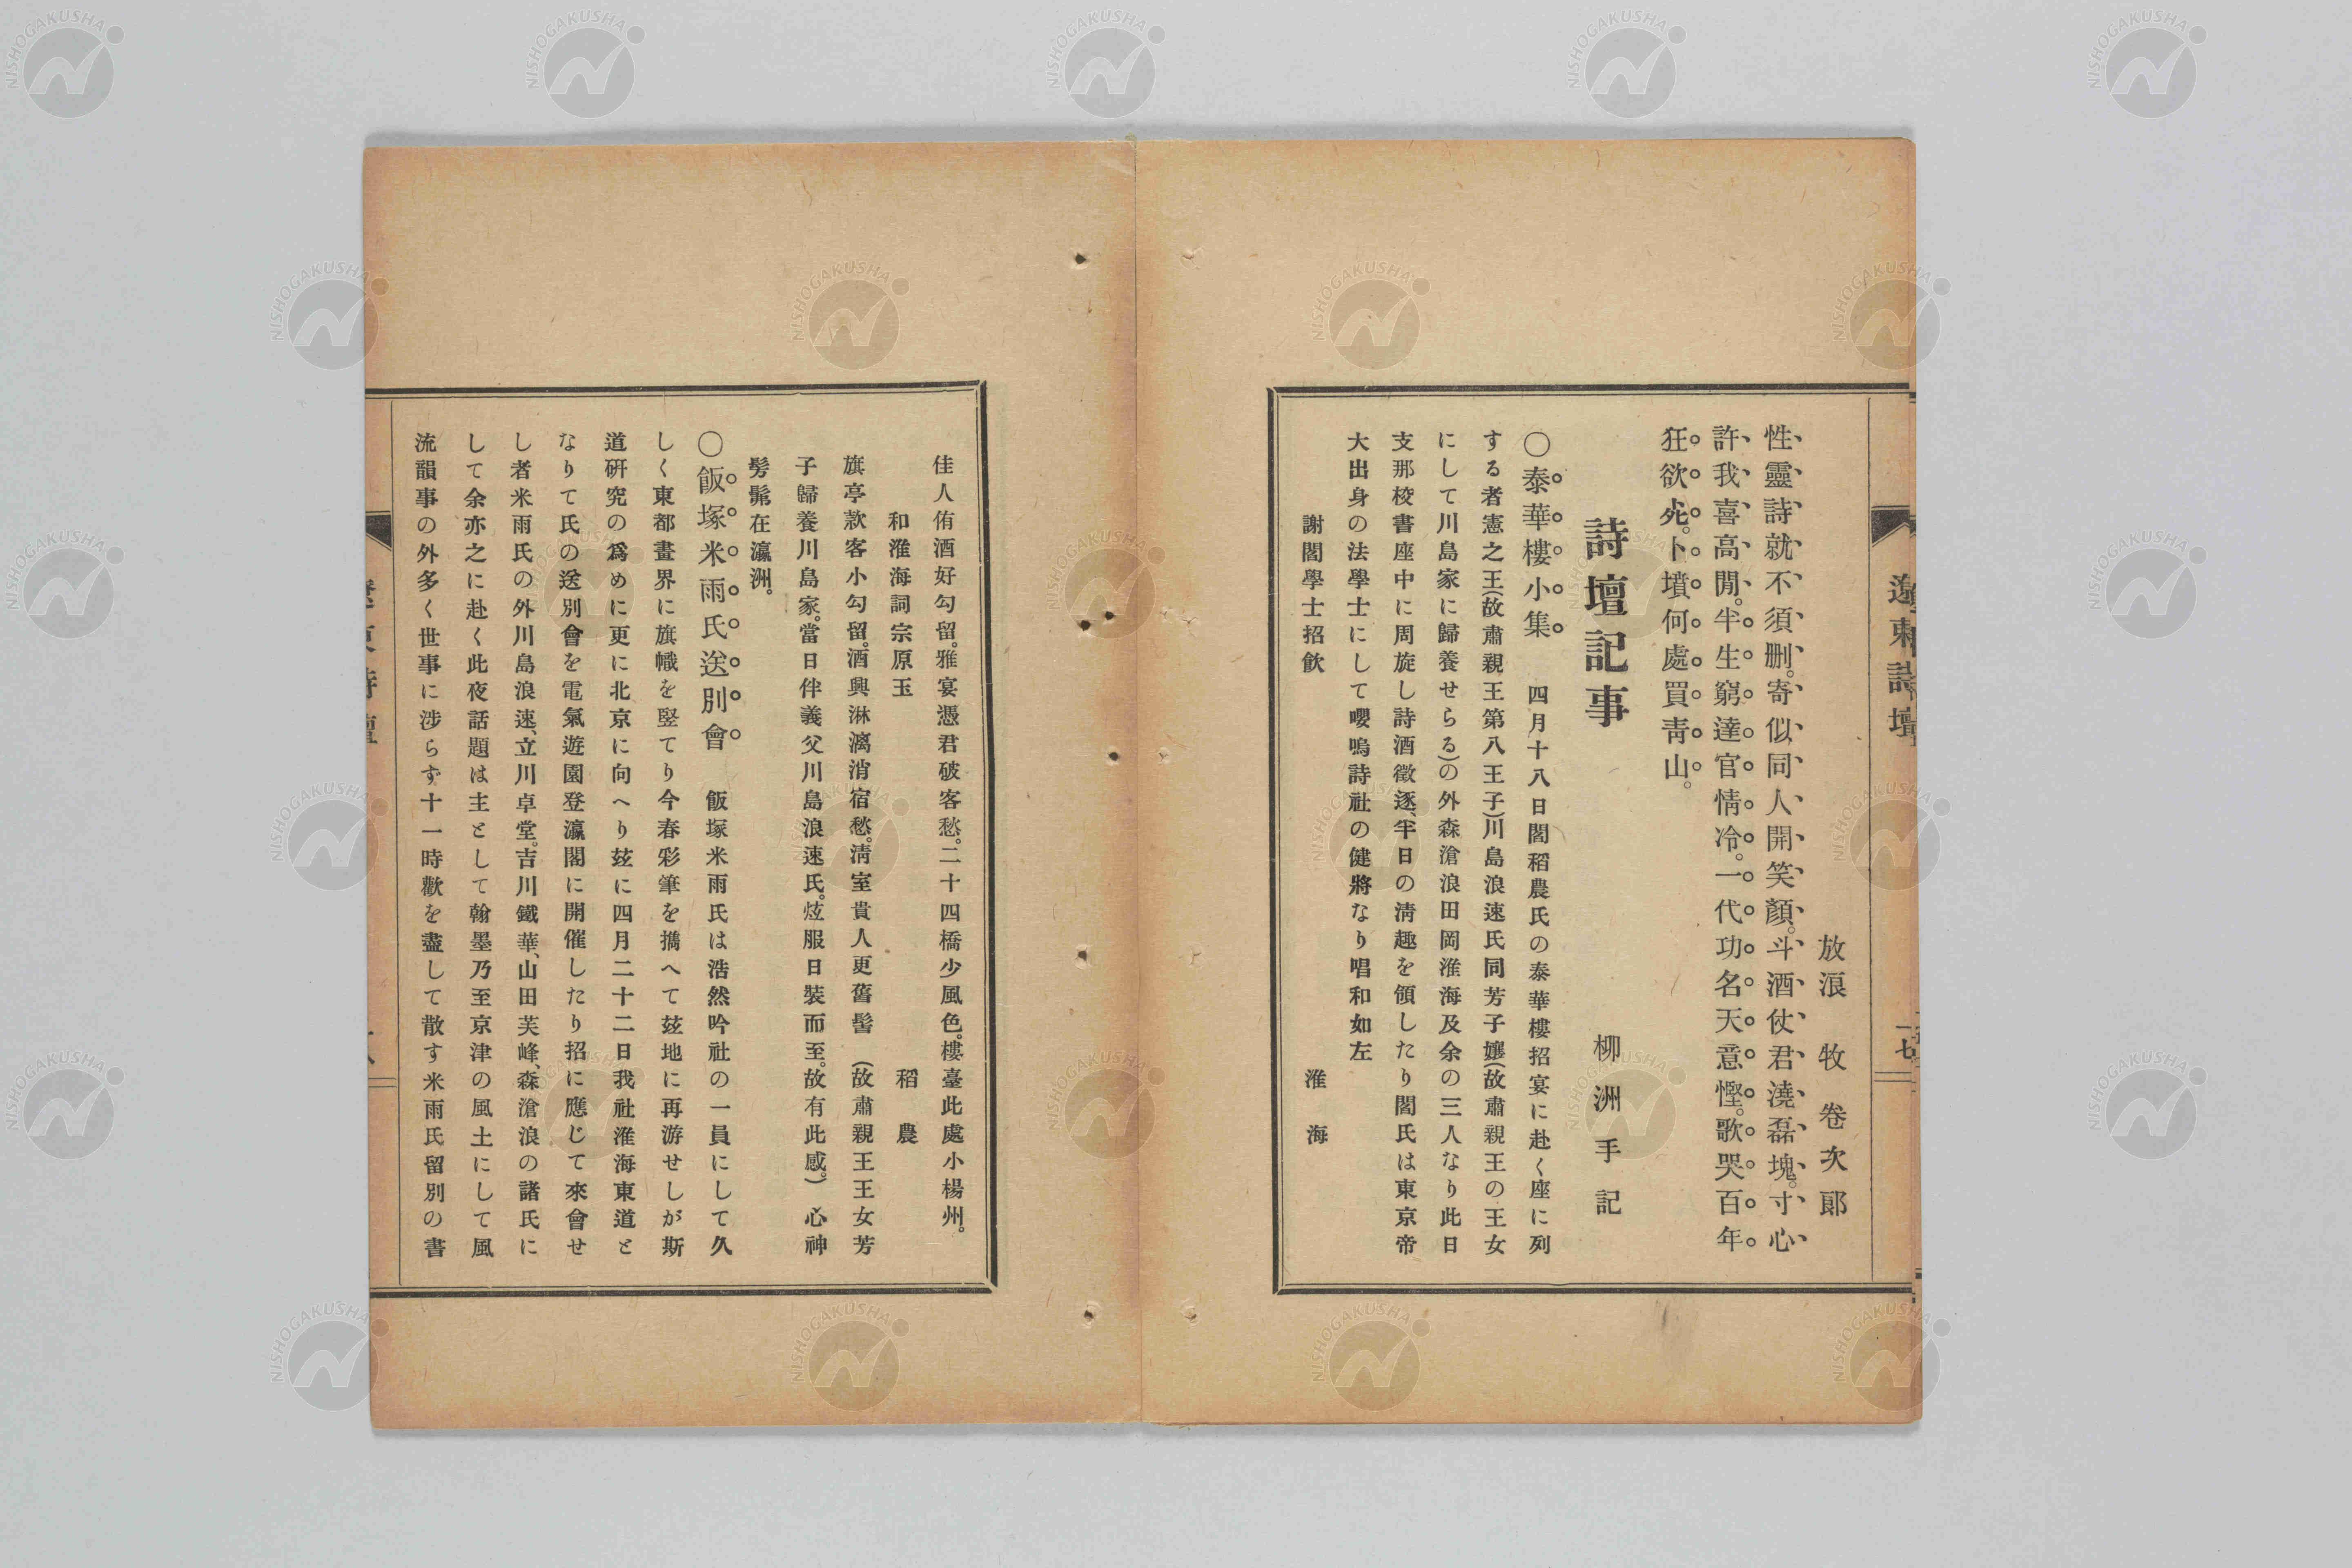 遼東詩壇
一七
放浪　牧卷次郎
性靈詩就不須刪。寄似同人開笑顏。斗酒仗君澆磊塊。寸心
許我喜高閒。半生窮達官情冷。一代功名天意慳。歌哭百年
狂欲死。卜墳何處買靑山。
詩壇記事　柳洲手記
〇泰華樓小集　四月十八日閣稻農氏の泰華樓招宴に赴く座に列
する者憲之王(故肅親王第八王子)川島浪速氏同芳子孃(故肅親王の王女
にして川島家に歸養せらる)の外森滄浪田岡淮海及余の三人なり此日
支那校書座中に周旋し詩酒徵逐、半日の淸趣を領したり閻氏は東京帝
大出身の法學士にして嚶鳴詩社の健將なり唱和如左
謝閻學士招飮　淮海
佳人侑酒好勾留。雅宴憑君破客愁。二十四橋少風色。樓臺此處小楊州。
和淮海詞宗原玉　稻農
旗亭款客小勾留。酒興淋漓消宿愁。淸室貴人更舊髻（故肅親王王女芳
子歸養川島家。當日伴義父川島浪速氏。炫服日裝而至。故有此感。）心神
髣髴在瀛洲。
〇飯塚米雨氏送別會　飯塚米雨氏は浩然吟社の一員にして久
しく東都畫界に旗幟を竪てり今春彩筆を携へて玆地に再游せしが斯
道硏究の爲めに更に北京に向へり玆に四月二十二日我社淮海東道と
なりて氏の送別會を電氣遊園登瀛閣に開催したり招に應じて來會せ
し者米雨氏の外川島浪速、立川卓堂。吉川鐵華、山田芙峰、森滄浪の諸氏に
して余亦之に赴く此夜話題は主として翰墨乃至京津の風土にして風
流韻事の外多く世事に涉らず十一時歡を盡して散す米雨氏留別の書